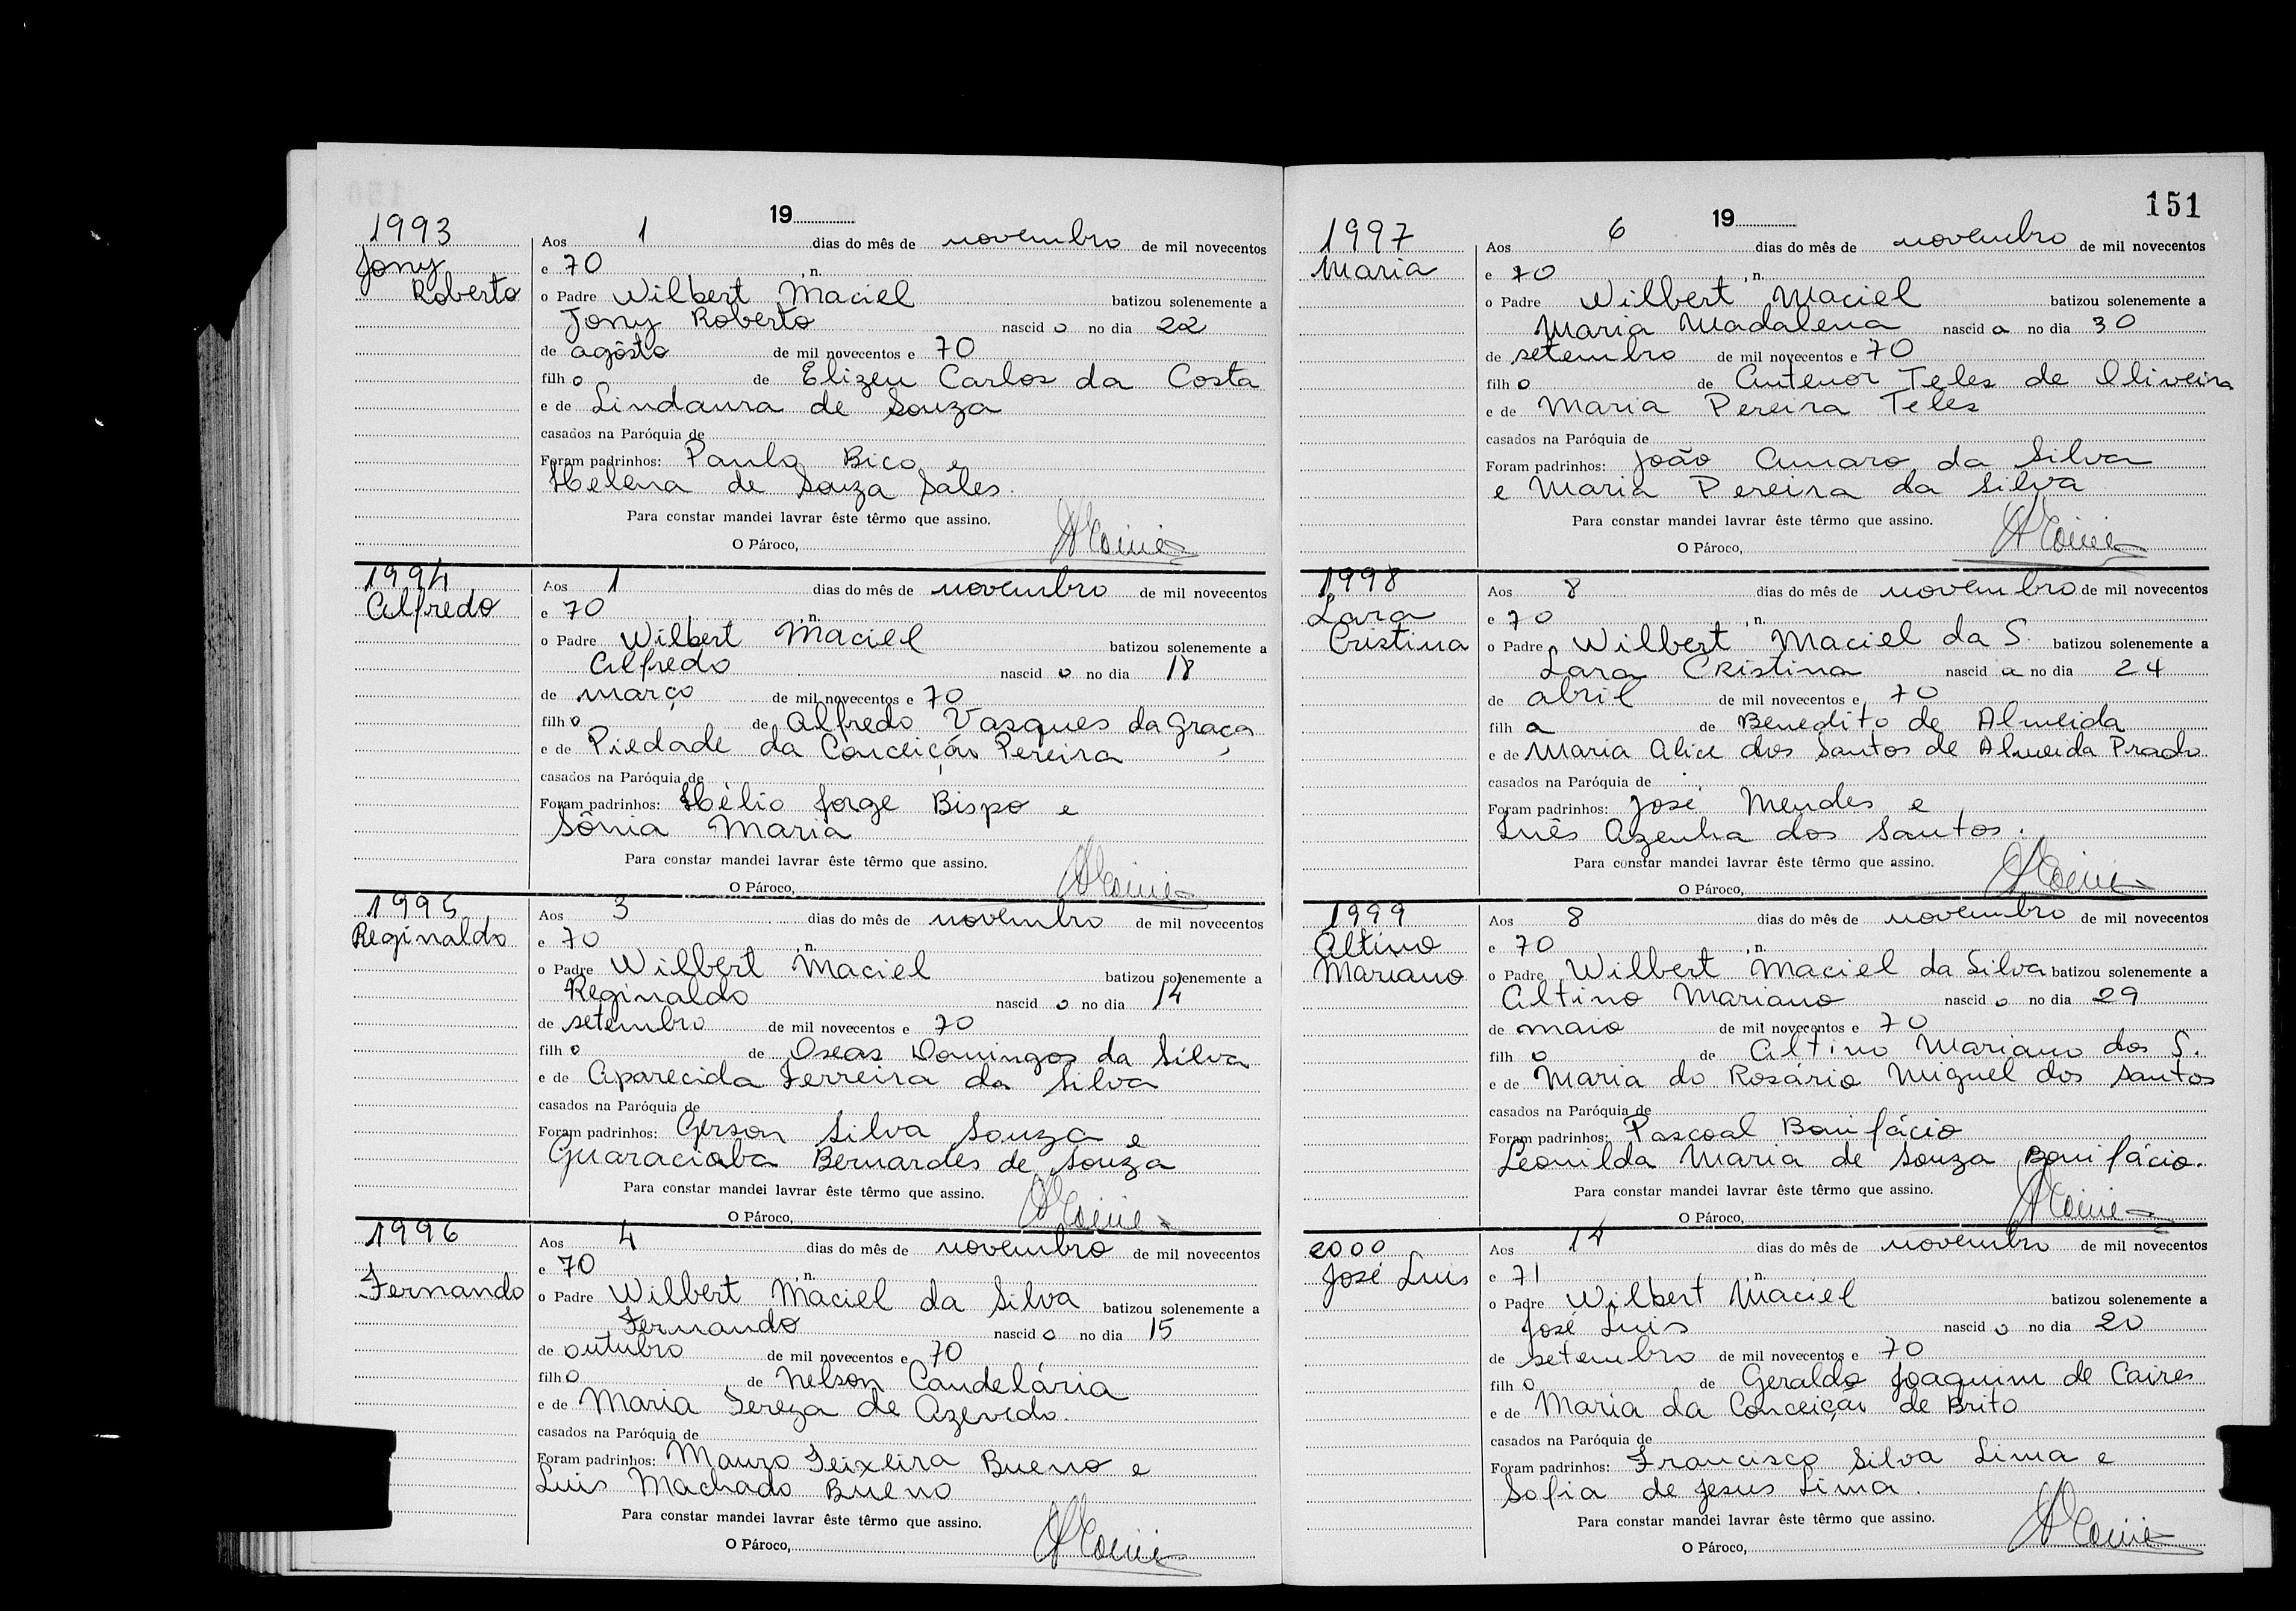 19
1993
Jony
Roberto
Aos 1 dias do mês de novembro de mil novecentos
e 70 , n.
o Padre Wilbert Maciel batizou solenemente a
Jony Roberto nascido no dia 22
de agôsto de mil novecentos e 70
filho de Elizeu Carlos da Costa
e de Lindaura de Souza
casados na Paróquia de
Foram padrinhos: Paulo Bico e
Helena de Souza Sales.
Para constar mandei lavrar êste têrmo que assino.
O Pároco,
1994
Alfredo
Aos 1 dias do mês de novembro de mil novecentos
e 70 , n.
o Padre Wilbert Maciel batizou solenemente a
Alfredo nascido no dia 18
de março de mil novecentos e 70
filho de Alfredo Vasques da Graça
e de Piedade da Conceição Pereira
casados na Paróquia de
Foram padrinhos: Hélio Jorge Bispo e
Sônia Maria
Para constar mandei lavrar êste têrmo que assino.
O Pároco,
1995
Reginaldo
Aos 3 dias do mês de novembro de mil novecentos
e 70 , n.
o Padre Wilbert Maciel batizou solenemente a
Reginaldo nascido no dia 14
de setembro de mil novecentos e 70
filho de Oseas Domingos da Silva
e de Aparecida Ferreira da Silva
casados na Paróquia de
Foram padrinhos: Gerson Silva Souza e
Guaraciaba Bernardes de Souza
Para constar mandei lavrar êste têrmo que assino.
O Pároco,
1996
Fernando
Aos 4 dias do mês de novembro de mil novecentos
e 70 , n.
o Padre Wilbert Maciel da Silva batizou solenemente a
Fernando nascido no dia 15
de outubro de mil novecentos e 70
filho de Nelson Candelária
e de Maria Tereza de Azevedo.
casados na Paróquia de
Foram padrinhos: Mauro Teixeira Bueno e
Luis Machado Bueno
Para constar mandei lavrar êste têrmo que assino.
O Pároco,
151
19
1997
Maria
Aos 6 dias do mês de novembro de mil novecentos
e 70 , n.
o Padre Wilbert Maciel batizou solenemente a
Maria Madalena nascida no dia 30
de setembro de mil novecentos e 70
filho de Antenor Teles de Oliveira
e de Maria Pereira Teles
casados na Paróquia de
Foram padrinhos: João Amaro da Silva
e Maria Pereira da Silva
Para constar mandei lavrar êste têrmo que assino.
O Pároco,
1998
Lara
Cristina
Aos 8 dias do mês de novembro de mil novecentos
e 70 , n.
o Padre Wilbert Maciel da S. batizou solenemente a
Lara Cristina nascida no dia 24
de abril de mil novecentos e 70
filha de Benedito de Almeida
e de Maria Alice dos Santos de Almeida Prado
casados na Paróquia de
Foram padrinhos: José Mendes e
Inês Azenha dos Santos.
Para constar mandei lavrar êste têrmo que assino.
O Pároco,
1999
Altino
Mariano
Aos 8 dias do mês de novembro de mil novecentos
e 70 , n.
o Padre Wilbert Maciel da Silva batizou solenemente a
Altino Mariano nascido no dia 29
de maio de mil novecentos e 70
filho de Altino Mariano dos S.
e de Maria do Rosário Miguel dos Santos
casados na Paróquia de
Foram padrinhos: Pascoal Bonifácio
Leonilda Maria de Souza Bonifácio.
Para constar mandei lavrar êste têrmo que assino.
O Pároco,
2000
José Luis
Aos dias do mês de novembro de mil novecentos
e 71 , n.
o Padre Wilbert Maciel batizou solenemente a
José Luis nascido no dia 20
de setembro de mil novecentos e 70
filho de Geraldo Joaquim de Caires
e de Maria da Conceição de Brito
casados na Paróquia de
Foram padrinhos: Francisco Silva Lima e
Sofia de Jesus Lima.
Para constar mandei lavrar êste têrmo que assino.
O Pároco,